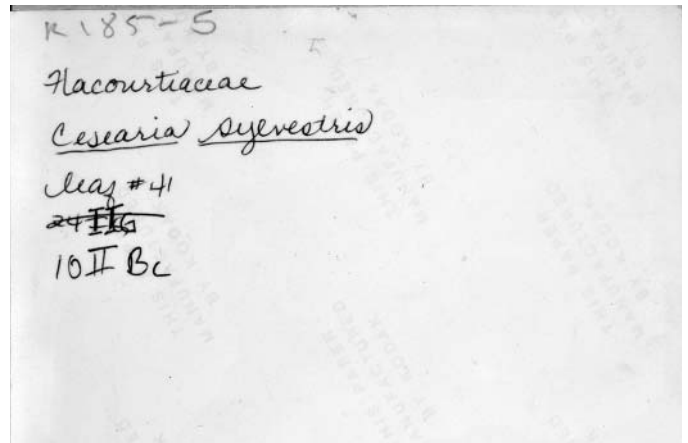 R185-5
Flacourtiaceae
Cesearia sylvestris
Leaf #41
24 II G
10 II Bc
THIS PAPER
MANUFACTURED
BY KODAK